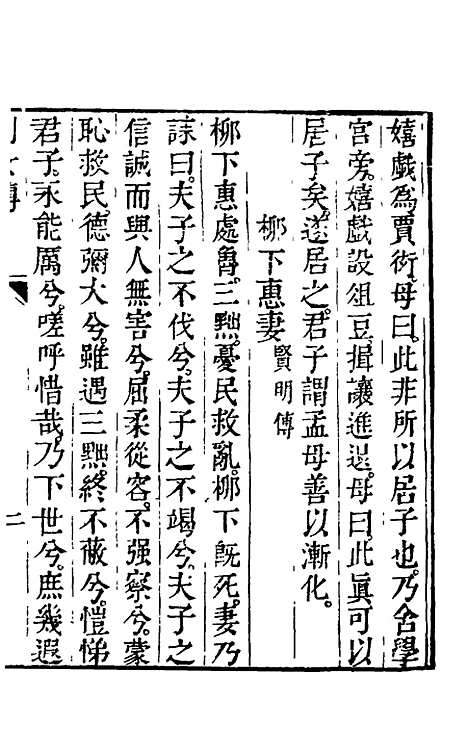 嬉戲爲賈術。母曰。此非所以居子也。乃舍學
宮旁。嬉戲設俎豆。揖讓進退。母曰。此眞可以
居子矣。遂居之。君子謂孟母善以漸化。
柳下惠妻 賢明傳
柳下惠處魯。三黜。憂民救亂。柳下旣死。妻乃
誄曰。夫子之不伐兮。夫子之不竭兮。夫子之
信誠而與人無害兮。屈柔從容。不强察兮。蒙
恥救民。德彌大兮。雖遇三黜。終不蔽兮。愷悌
君子。永能厲兮。嗟呼惜哉。乃下世兮。庶幾遐
二